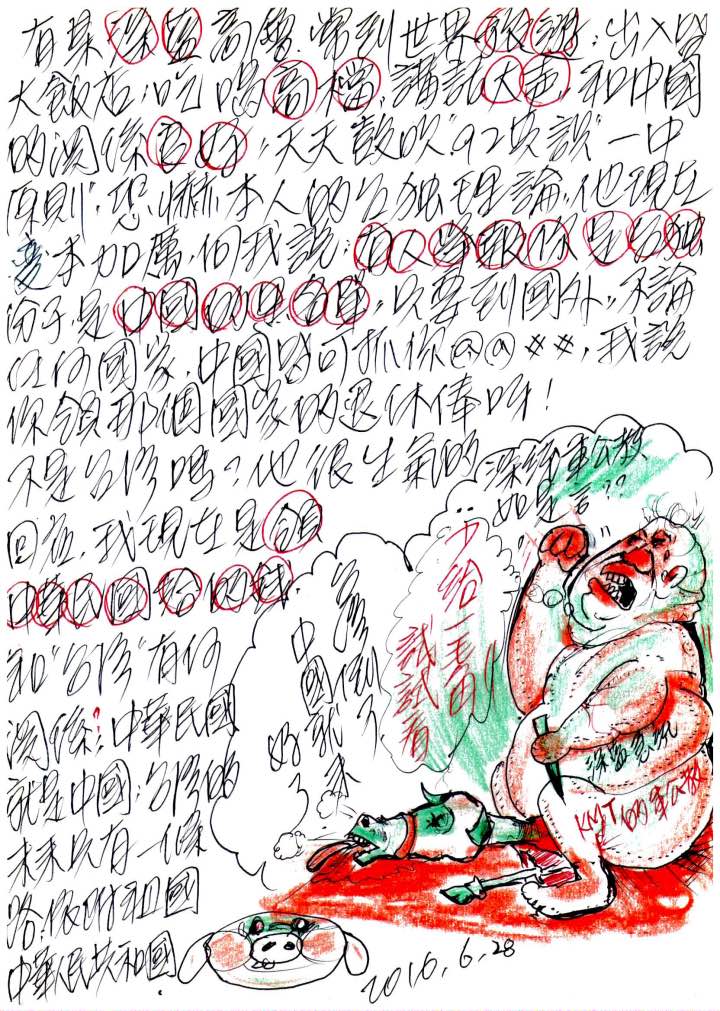 有某深藍高幹,常到世界旅遊;出入口
大飯店,吃喝高檔,講話大声,和中國
的関係良好,天天鼓吹"92共識"一中
原則",恐嚇本人的台独理論,他現在
变本加厲,向我說:有人舉報你是台独
份子,是中國的口台辦,只要到國外,不論
任何國家,中國皆可抓你@@##,我說
你領那個國家的退休俸呀!
不是台灣嗎?他很生氣的
回應,我現在是領
中華民國給的錢,
和"台灣"有何
関係?中華民國
就是中國;台灣的
未來只有一條
路:依附祖國
中華人民共和國
深綠軍公教
如是言??
少給一毛
試試看
台灣倒了
中國
就來
好了
深藍
KMT的軍公教
2016.6.28